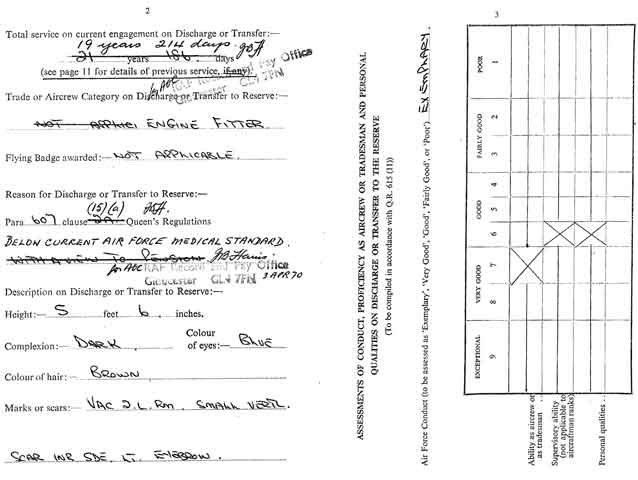 2
Total service on current engagement on Discharge or Transfer:—
19 years 214 days
21 years 186 days
(see page 11 for details of previous service, if any).
for AOC RAF Record and Pay Office
Gloucester GL4 7FN
Trade or Aircrew Category on Discharge or Transfer to Reserve:—
NOT APPLIC: ENGINE FITTER
Flying Badge awarded:— NOT APPLICABLE.
Reason for Discharge or Transfer to Reserve:—
(15)(a)
Para 607 clause Queen's Regulations
BELOW CURRENT AIR FORCE MEDICAL STANDARD.
WITH A VIEW TO PENSION
for AOC RAF Record and Pay Office
Gloucester GL4 7FN APR 70
Description on Discharge or Transfer to Reserve:—
Height:— 5 feet 6 inches.
Complexion:— DARK Colour of eyes:— BLUE
Colour of hair:— BROWN
Marks or scars:— VAC 2.L.Rm. SMALL VERTL.
SCAR INR SDE. LT. EYEBROW.
3
ASSESSMENTS OF CONDUCT, PROFICIENCY AS AIRCREW OR TRADESMAN AND PERSONAL
QUALITIES ON DISCHARGE OR TRANSFER TO THE RESERVE
(To be compiled in accordance with Q.R. 615 (11))
Air Force Conduct (to be assessed as 'Exemplary', 'Very Good', 'Good', 'Fairly Good', or 'Poor') EXEMPLARY.
EXCEPTIONAL VERY GOOD GOOD FAIRLY GOOD POOR
9 8 7 6 5 4 3 2 1
Ability as aircrew or
as tradesman ..
Supervisory ability
(not applicable to
aircraftman ranks)
Personal qualities ..